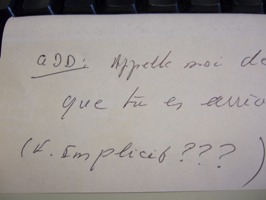 QJD: Appelle moi de
que tu es arrivé
(V. Implicit ???)